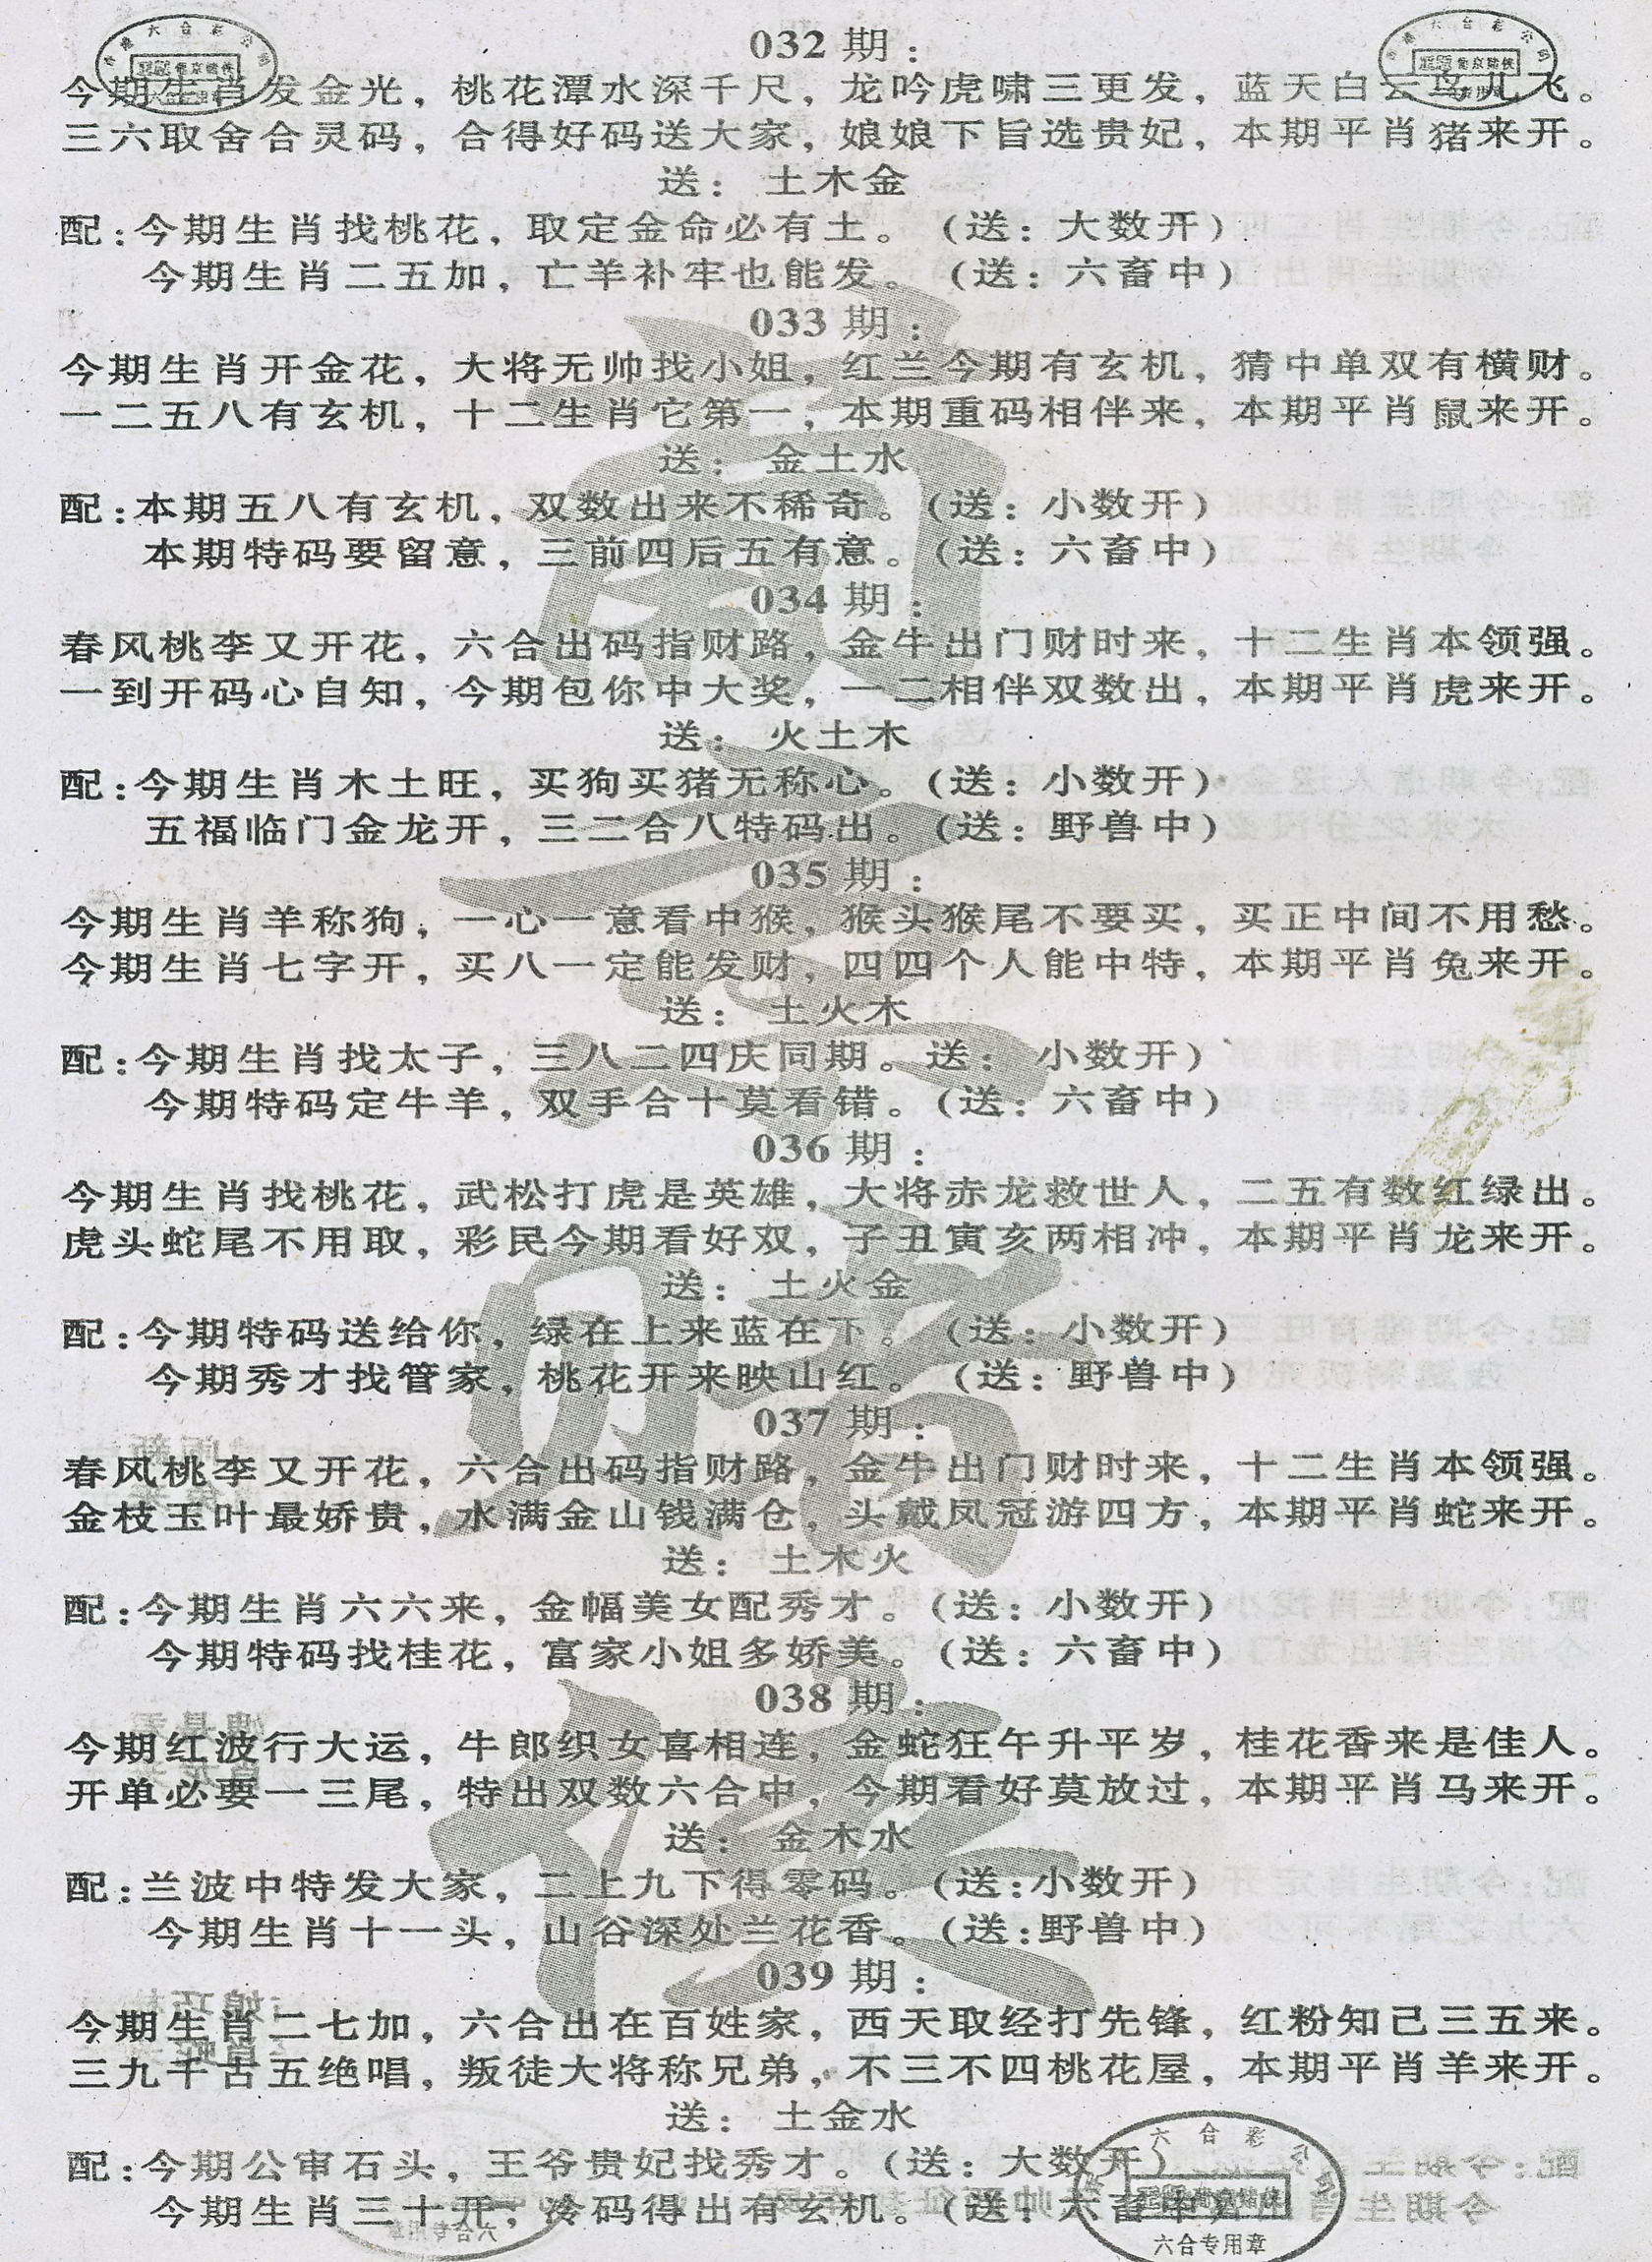 032期：
今期生肖发金光，桃花潭水深千尺，龙吟虎啸三更发，蓝天白云鸟儿飞。
三六取舍合灵码，合得好码送大家，娘娘下旨选贵妃，本期平肖猪来开。
送：土木金
配：今期生肖找桃花，取定金命必有土。（送：大数开）
今期生肖二五加，亡羊补牢也能发。（送：六畜中）
033期：
今期生肖开金花，大将无帅找小姐，红兰今期有玄机，猜中单双有横财。
一二五八有玄机，十二生肖它第一，本期重码相伴来，本期平肖鼠来开。
送：金土水
配：本期五八有玄机，双数出来不稀奇。（送：小数开）
本期特码要留意，三前四后五有意。（送：六畜中）
034期：
春风桃李又开花，六合出码指财路，金牛出门财时来，十二生肖本领强。
一到开码心自知，今期包你中大奖，一二相伴双数出，本期平肖虎来开。
送：火土木
配：今期生肖木土旺，买狗买猪无称心。（送：小数开）
五福临门金龙开，三二合八特码出。（送：野兽中）
035期：
今期生肖羊称狗，一心一意看中猴，猴头猴尾不要买，买正中间不用愁。
今期生肖七字开，买八一定能发财，四四个人能中特，本期平肖兔来开。
送：土火木
配：今期生肖找太子，三八二四庆同期。送：小数开）
今期特码定牛羊，双手合十莫看错。（送：六畜中）
036期：
今期生肖找桃花，武松打虎是英雄，大将赤龙救世人，二五有数红绿出。
虎头蛇尾不用取，彩民今期看好双，子丑寅亥两相冲，本期平肖龙来开。
送：土火金
配：今期特码送给你，绿在上来蓝在下。（送：小数开）
今期秀才找管家，桃花开来映山红。（送：野兽中）
037期：
春风桃李又开花，六合出码指财路，金牛出门财时来，十二生肖本领强。
金枝玉叶最娇贵，水满金山钱满仓，头戴凤冠游四方，本期平肖蛇来开。
送：土木火
配：今期生肖六六来，金幅美女配秀才。（送：小数开）
今期特码找桂花，富家小姐多娇美。（送：六畜中）
038期：
今期红波行大运，牛郎织女喜相连，金蛇狂午升平岁，桂花香来是佳人。
开单必要一三尾，特出双数六合中，今期看好莫放过，本期平肖马来开。
送：金木水
配：兰波中特发大家，二上九下得零码。（送：小数开）
今期生肖十一头，山谷深处兰花香。（送：野兽中）
039期：
今期生肖二七加，六合出在百姓家，西天取经打先锋，红粉知己三五来。
三九千古五绝唱，叛徒大将称兄弟，不三不四桃花屋，本期平肖羊来开。
送：土金水
配：今期公审石头，王爷贵妃找秀才。（送：大数开）
今期生肖三十开，冷码得出有玄机。（送：六畜中）
六合专用章